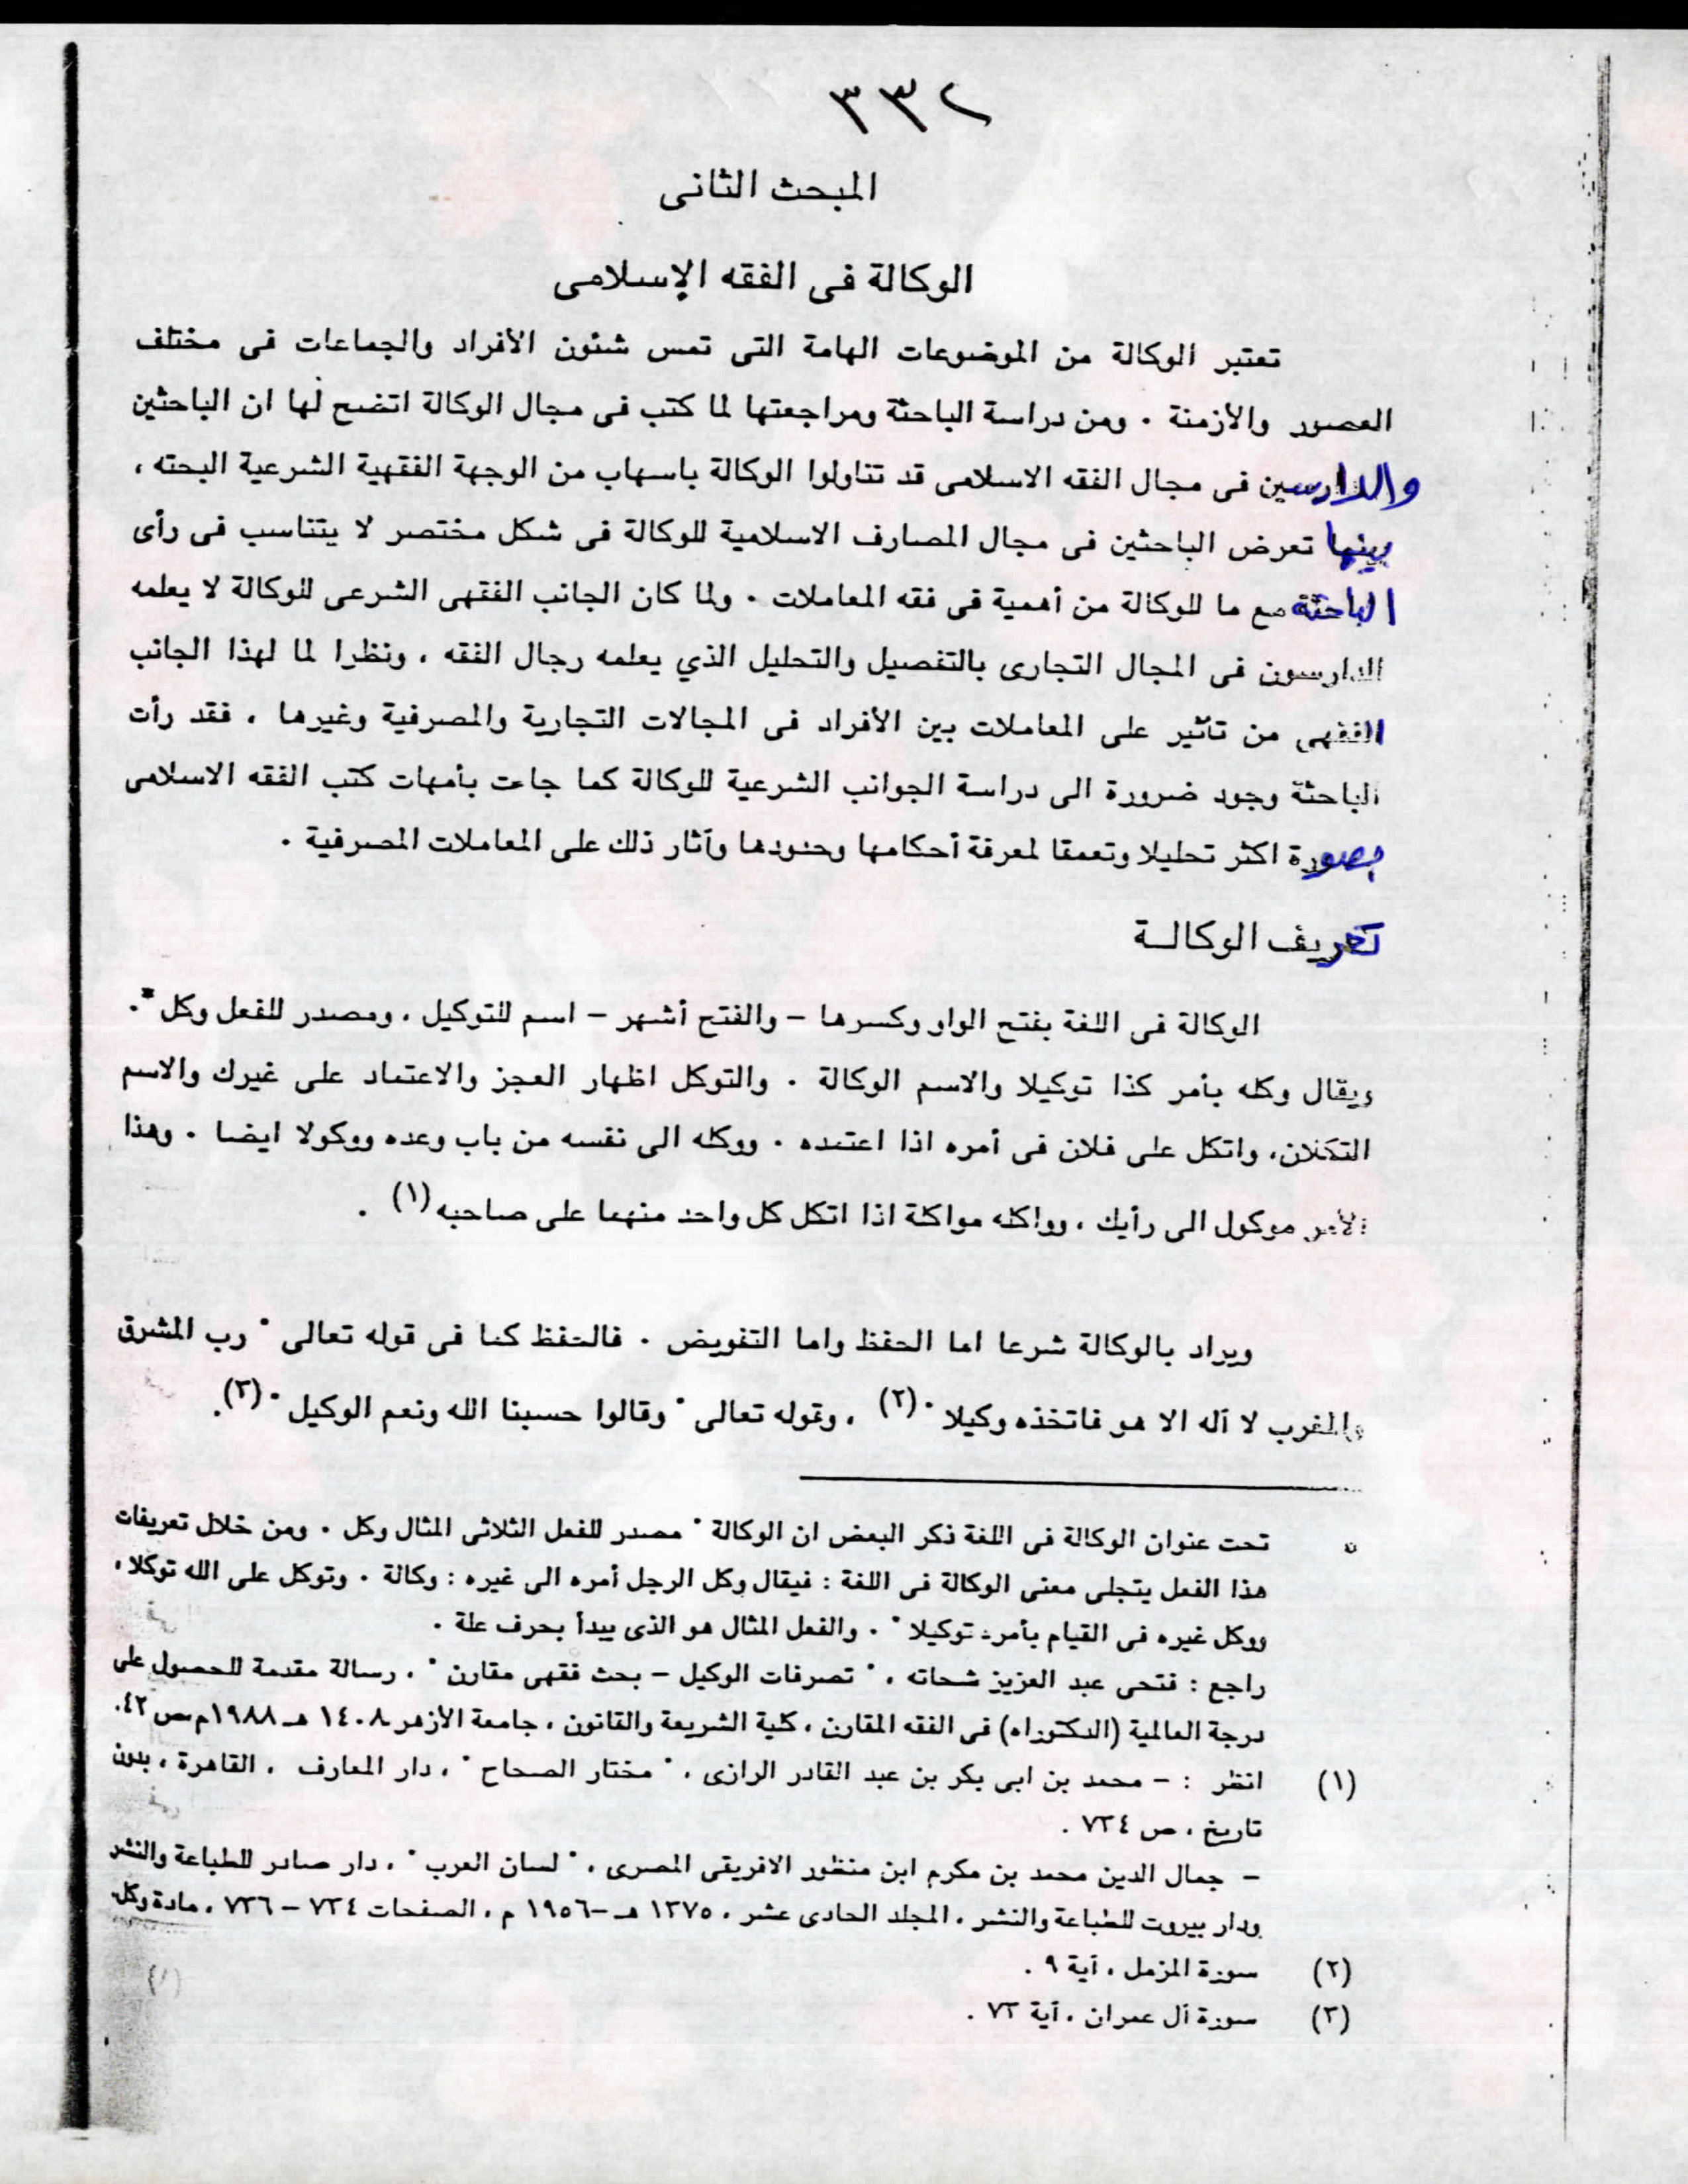 ٣٣٢
المبحث الثانى
الوكالة فى الفقه الإسلامى
تعتبر الوكالة من الموضوعات الهامة التى تمس شئون الأفراد والجماعات فى مختلف
العصور والأزمنة . ومن دراسة الباحثة ومراجعتها لما كتب فى مجال الوكالة اتضح لها ان الباحثين
والدارسين فى مجال الفقه الاسلامى قد تناولوا الوكالة باسهاب من الوجهة الفقهية الشرعية البحته ،
بينما تعرض الباحثين فى مجال المصارف الاسلامية للوكالة فى شكل مختصر لا يتناسب فى رأى
الباحثة مع ما للوكالة من أهمية فى فقه المعاملات . ولما كان الجانب الفقهى الشرعى للوكالة لا يعلمه
الدارسون فى المجال التجارى بالتفصيل والتحليل الذي يعلمه رجال الفقه ، ونظرا لما لهذا الجانب
الفقهى من تأثير على المعاملات بين الأفراد فى المجالات التجارية والمصرفية وغيرها ، فقد رأت
الباحثة وجود ضرورة الى دراسة الجوانب الشرعية للوكالة كما جاءت بأمهات كتب الفقه الاسلامى
بصورة اكثر تحليلا وتعمقا لمعرفة أحكامها وحدودها وآثار ذلك على المعاملات المصرفية .
تعريف الوكالـة
الوكالة فى اللغة بفتح الواو وكسرها – والفتح أشهر – اسم للتوكيل ، ومصدر للفعل وكل * .
ويقال وكله بأمر كذا توكيلا والاسم الوكالة . والتوكل اظهار العجز والاعتماد على غيرك والاسم
التكلان، واتكل على فلان فى أمره اذا اعتمده . ووكله الى نفسه من باب وعده ووكولا ايضا . وهذا
الأمر موكول الى رأيك ، وواكله مواكلة اذا اتكل كل واحد منهما على صاحبه (١) .
ويراد بالوكالة شرعا اما الحفظ واما التفويض . فالحفظ كما فى قوله تعالى " رب المشرق
والمغرب لا آله الا هو فاتخذه وكيلا " (٢) ، وقوله تعالى " وقالوا حسبنا الله ونعم الوكيل " (٣).
* تحت عنوان الوكالة فى اللغة ذكر البعض ان الوكالة " مصدر للفعل الثلاثى المثال وكل . ومن خلال تعريفات
هذا الفعل يتجلى معنى الوكالة فى اللغة : فيقال وكل الرجل أمره الى غيره : وكالة . وتوكل على الله توكلا ،
ووكل غيره فى القيام بأمره توكيلا " . والفعل المثال هو الذى يبدأ بحرف علة .
راجع : فتحى عبد العزيز شحاته ، " تصرفات الوكيل – بحث فقهى مقارن " ، رسالة مقدمة للحصول على
درجة العالمية (الدكتوراه) فى الفقه المقارن ، كلية الشريعة والقانون ، جامعة الأزهر ١٤٠٨ هـ ١٩٨٨م ص ٤٢.
(١) انظر : – محمد بن ابى بكر بن عبد القادر الرازى ، " مختار الصحاح " ، دار المعارف ، القاهرة ، بدون
تاريخ ، ص ٧٣٤ .
– جمال الدين محمد بن مكرم ابن منظور الافريقى المصرى ، " لسان العرب " ، دار صادر للطباعة والنشر
ودار بيروت للطباعة والنشر ، المجلد الحادى عشر ، ١٣٧٥ هـ –١٩٥٦ م ، الصفحات ٧٣٤ – ٧٣٦ ، مادة وكل
(٢) سورة المزمل ، آية ٩ .
(٣) سورة آل عمران ، آية ٧٣ .